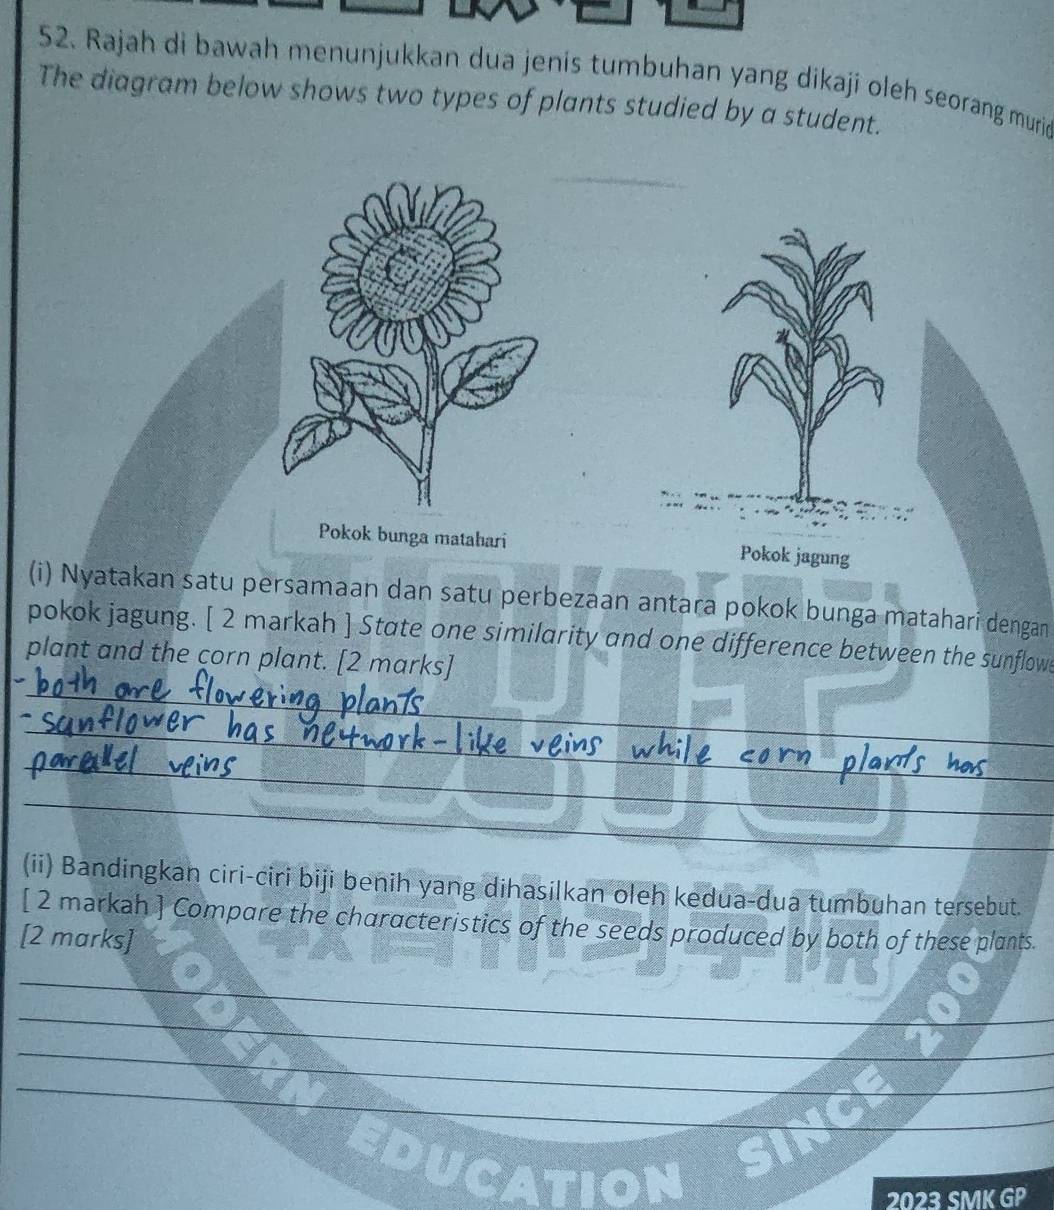 52. Rajah di bawah menunjukkan dua jenis tumbuhan yang dikaji oleh seorang murid
The diagram below shows two types of plants studied by a student.
Pokok bunga matahari
Pokok jagung
(i) Nyatakan satu persamaan dan satu perbezaan antara pokok bunga matahari dengan
pokok jagung. [ 2 markah ] State one similarity and one difference between the sunflowe
plant and the corn plant. [2 marks]
- both are flowering plants
- sunflower has network-like veins while corn plants has
parallel veins
(ii) Bandingkan ciri-ciri biji benih yang dihasilkan oleh kedua-dua tumbuhan tersebut.
[ 2 markah ] Compare the characteristics of the seeds produced by both of these plants.
[2 marks]
教育补习学院
MODERN EDUCATION SINCE 2000
2023 SMK GP